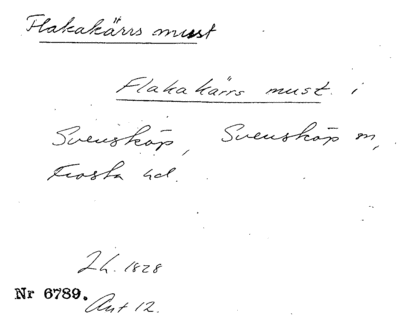 Flakakärrs must
Flakakärrs must i
Svensköp, Svensköp sn,
Frosta hd.
Lh. 1828
Nr 6789.
Akt 12.